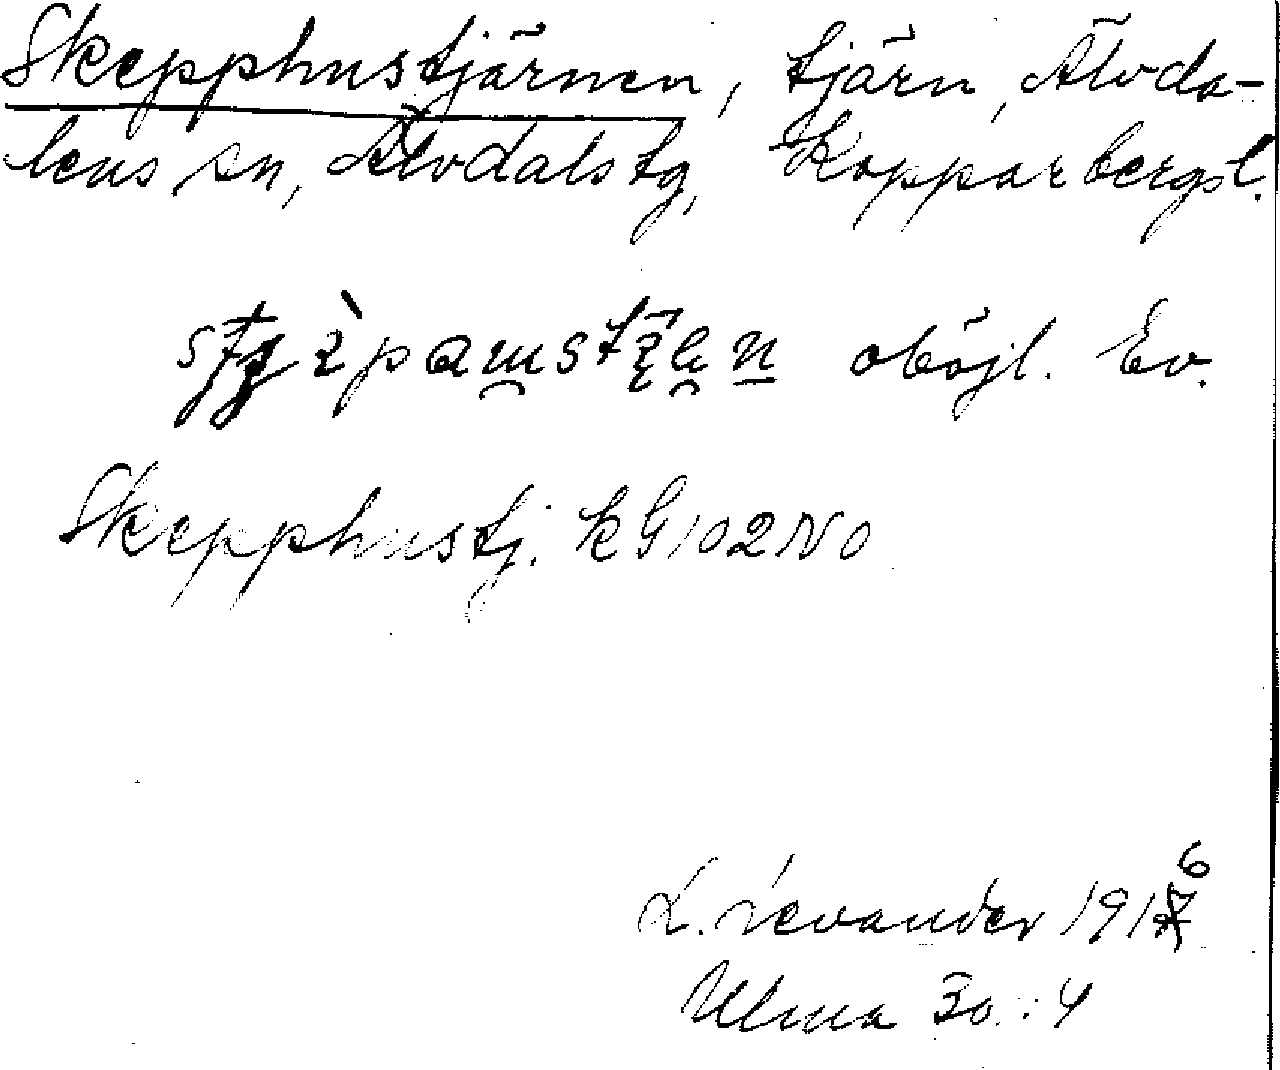 Skepphustjärnen, tjärn, Älvda-
lens sn, Älvdals tg, Kopparbergs l.
oböjl. Ev.
Skepphustj. k G 102 NO
L. Levander 1916
Ulma 30:4